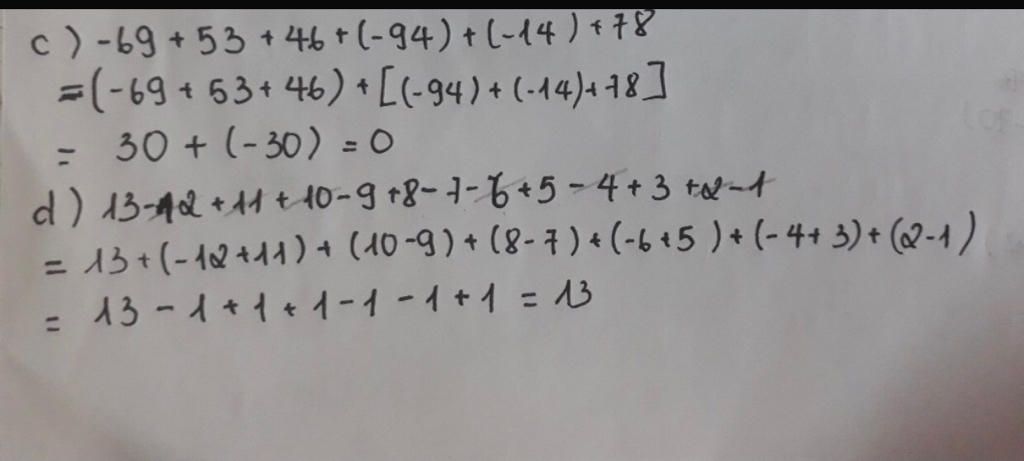 c) -69 + 53 + 46 + (-94) + (-14) + 78
= (-69 + 53 + 46) + [(-94) + (-14) + 78]
= 30 + (-30) = 0
d) 13-12 + 11 + 10 - 9 + 8 - 7 - 6 + 5 - 4 + 3 + 2 - 1
= 13 + (-12 + 11) + (10 - 9) + (8 - 7) + (-6 + 5) + (-4 + 3) + (2 - 1)
= 13 - 1 + 1 + 1 - 1 - 1 + 1 = 13